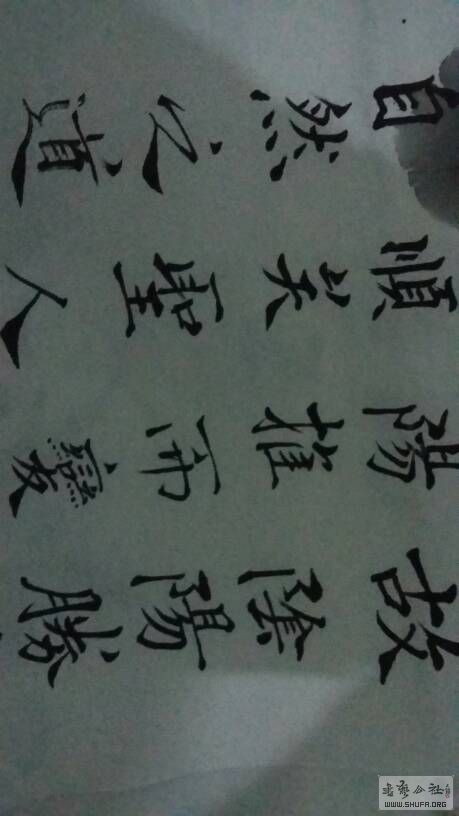 故陰陽勝
陽推而變
順矣聖人
自然之道
书艺公社
WWW.SHUFA.ORG